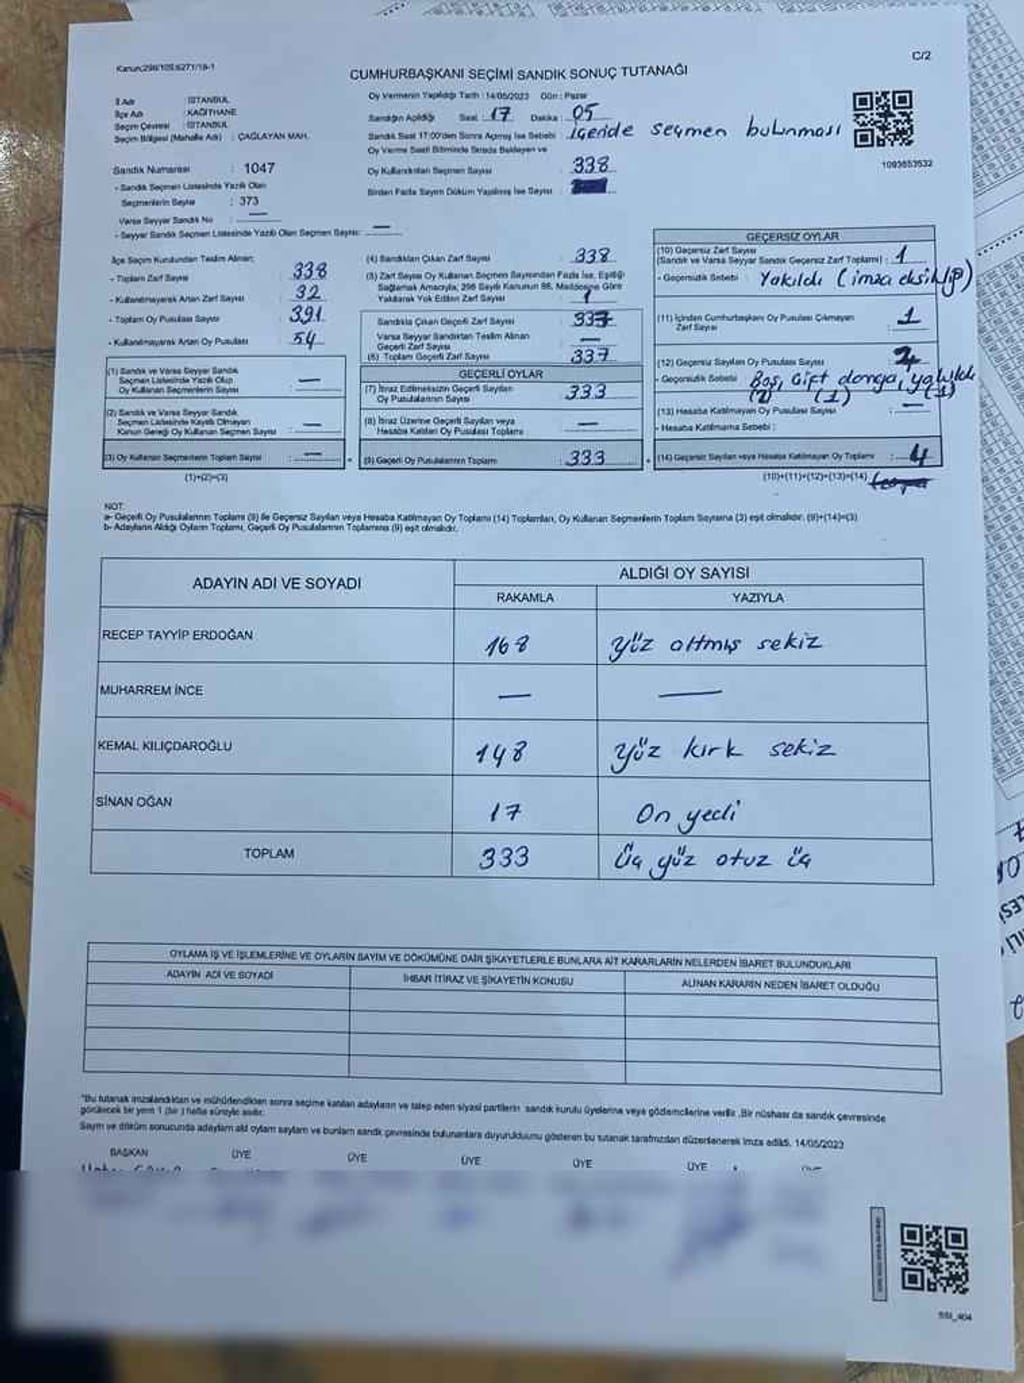 C/2
Kanun:298/105,6271/18-1
CUMHURBAŞKANI SEÇİMİ SANDIK SONUÇ TUTANAĞI
İl Adı : İSTANBUL
İlçe Adı : KAĞITHANE
Seçim Çevresi : İSTANBUL
Seçim Bölgesi (Mahalle Adı) : ÇAĞLAYAN MAH.
Sandık Numarası : 1047
- Sandık Seçmen Listesinde Yazılı Olan
Seçmenlerin Sayısı : 373
Varsa Seyyar Sandık No : —
- Seyyar Sandık Seçmen Listesinde Yazılı Olan Seçmen Sayısı: —
Oy Vermenin Yapıldığı Tarih : 14/05/2023 Gün : Pazar
Sandığın Açıldığı Saat : 17 Dakika : 05
Sandık Saat 17:00'den Sonra Açılmış İse Sebebi : İçeride seçmen bulunması
Oy Verme Saati Bitiminde Sırada Bekleyen ve
Oy Kullandırılan Seçmen Sayısı : 338
Birden Fazla Sayım Döküm Yapılmış İse Sayısı :
1093653532
İlçe Seçim Kurulundan Teslim Alınan;
- Toplam Zarf Sayısı : 338
- Kullanılmayarak Artan Zarf Sayısı : 32
- Toplam Oy Pusulası Sayısı : 391
- Kullanılmayarak Artan Oy Pusulası : 54
(1) Sandık ve Varsa Seyyar Sandık
Seçmen Listesinde Yazılı Olup
Oy Kullanan Seçmenlerin Sayısı : —
(2) Sandık ve Varsa Seyyar Sandık
Seçmen Listesinde Kayıtlı Olmayan
Kanun Gereği Oy Kullanan Seçmen Sayısı : —
(3) Oy Kullanan Seçmenlerin Toplam Sayısı : —
(1)+(2)=(3)
(4) Sandıktan Çıkan Zarf Sayısı : 338
(5) Zarf Sayısı Oy Kullanan Seçmen Sayısından Fazla İse, Eşitliği
Sağlamak Amacıyla; 298 Sayılı Kanunun 98. Maddesine Göre
Yakılarak Yok Edilen Zarf Sayısı : 1
Sandıkta Çıkan Geçerli Zarf Sayısı : 337
Varsa Seyyar Sandıktan Teslim Alınan
Geçerli Zarf Sayısı : —
(6) Toplam Geçerli Zarf Sayısı : 337
GEÇERLİ OYLAR
(7) İtiraz Edilmeksizin Geçerli Sayılan
Oy Pusulalarının Sayısı : 333
(8) İtiraz Üzerine Geçerli Sayılan veya
Hesaba Katılan Oy Pusulası Toplamı : —
(9) Geçerli Oy Pusulalarının Toplamı : 333
GEÇERSİZ OYLAR
(10) Geçersiz Zarf Sayısı
(Sandık ve Varsa Seyyar Sandık Geçersiz Zarf Toplamı) : 1
- Geçersizlik Sebebi : Yakıldı (imza eksikliği)
(11) İçinden Cumhurbaşkanı Oy Pusulası Çıkmayan
Zarf Sayısı : 1
(12) Geçersiz Sayılan Oy Pusulası Sayısı :
- Geçersizlik Sebebi : Boş, Çift damga,
(2) (1) (1)
(13) Hesaba Katılmayan Oy Pusulası Sayısı : —
- Hesaba Katılmama Sebebi :
(14) Geçersiz Sayılan veya Hesaba Katılmayan Oy Toplamı : 4
(10)+(11)+(12)+(13)=(14)
NOT:
a- Geçerli Oy Pusulalarının Toplamı (9) ile Geçersiz Sayılan veya Hesaba Katılmayan Oy Toplamı (14) Toplamları, Oy Kullanan Seçmenlerin Toplam Sayısına (3) eşit olmalıdır. (9)+(14)=(3)
b- Adayların Aldığı Oyların Toplamı, Geçerli Oy Pusulalarının Toplamına (9) eşit olmalıdır.
ADAYIN ADI VE SOYADI ALDIĞI OY SAYISI
RAKAMLA YAZIYLA
RECEP TAYYİP ERDOĞAN 168 Yüz altmış sekiz
MUHARREM İNCE — —
KEMAL KILIÇDAROĞLU 148 Yüz kırk sekiz
SİNAN OĞAN 17 On yedi
TOPLAM 333 Üç yüz otuz üç
OYLAMA İŞ VE İŞLEMLERİNE VE OYLARIN SAYIM VE DÖKÜMÜNE DAİR ŞİKAYETLERLE BUNLARA AİT KARARLARIN NELERDEN İBARET BULUNDUKLARI
ADAYIN ADI VE SOYADI İHBAR İTİRAZ VE ŞİKAYETİN KONUSU ALINAN KARARIN NEDEN İBARET OLDUĞU
"Bu tutanak imzalandıktan ve mühürlendikten sonra seçime katılan adayların ve talep eden siyasi partilerin sandık kurulu üyelerine veya gözlemcilerine verilir. Bir nüshası da sandık çevresinde
görülecek bir yere 1 (bir) hafta süreyle asılır.
Sayım ve döküm sonucunda adayların aldığı oyların sayısını ve bunların sandık çevresinde bulunanlara duyurulduğunu gösteren bu tutanak tarafımızdan düzenlenerek imza edildi. 14/05/2023
BAŞKAN ÜYE ÜYE ÜYE ÜYE ÜYE
SSI_404